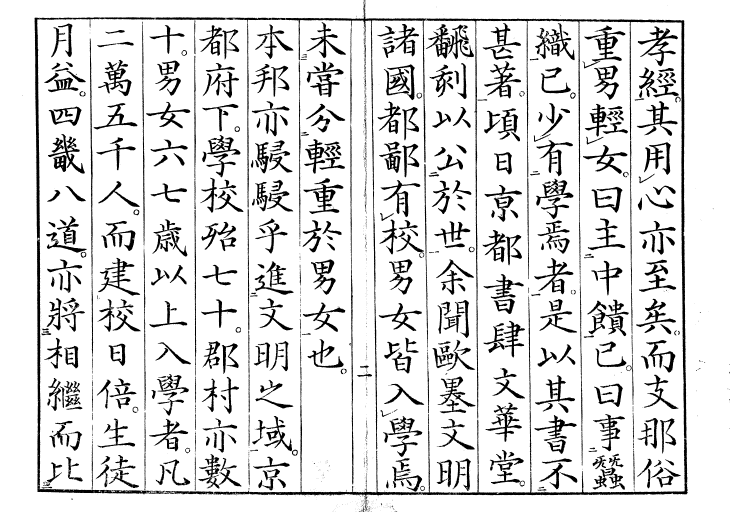 孝經。其用心亦至矣。而支那俗
重男輕女。曰主中饋已。曰事蠶
織已。少有學焉者。是以其書不
甚著。頃日亰都書肆文華堂。
飜刻以公於世。余聞歐墨文明
諸國。都鄙有校。男女皆入學焉。
二
未嘗分輕重於男女也。
本邦亦駸駸乎進文明之域。京
都府下。學校殆七十。郡村亦數
十。男女六七歳以上入學者。凡
二萬五千人。而建校日倍。生徒
月益。四畿八道。亦將相繼而比